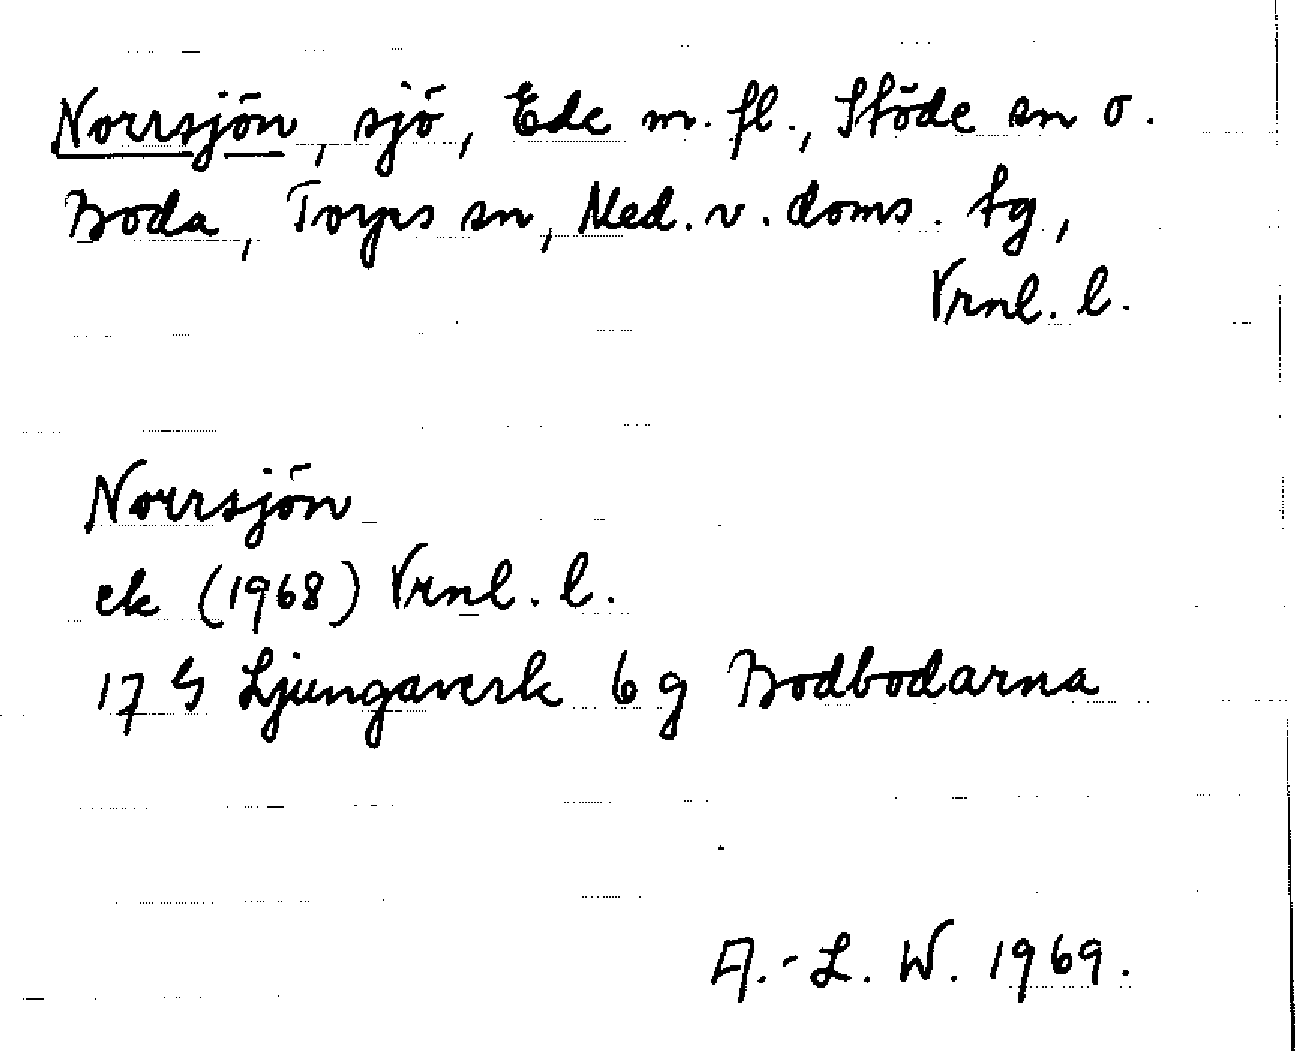 Norrsjön, sjö, Ede m. fl., Stöde sn o.
Boda, Torps sn, Med. v. doms. tg,
Vrnl. l.
Norrsjön
ek (1968) Vrnl. l.
17 G Ljungaverk 6 g Bodbodarna
A.-L. W. 1969.